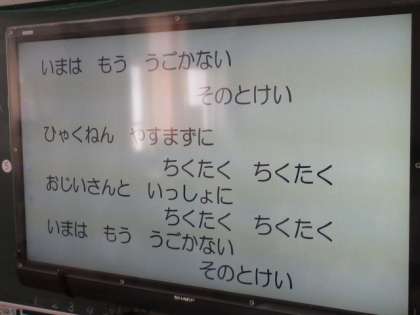 いまは もう うごかない
そのとけい
ひゃくねん やすまずに
ちくたく ちくたく
おじいさんと いっしょに
ちくたく ちくたく
いまは もう うごかない
そのとけい
SHARP